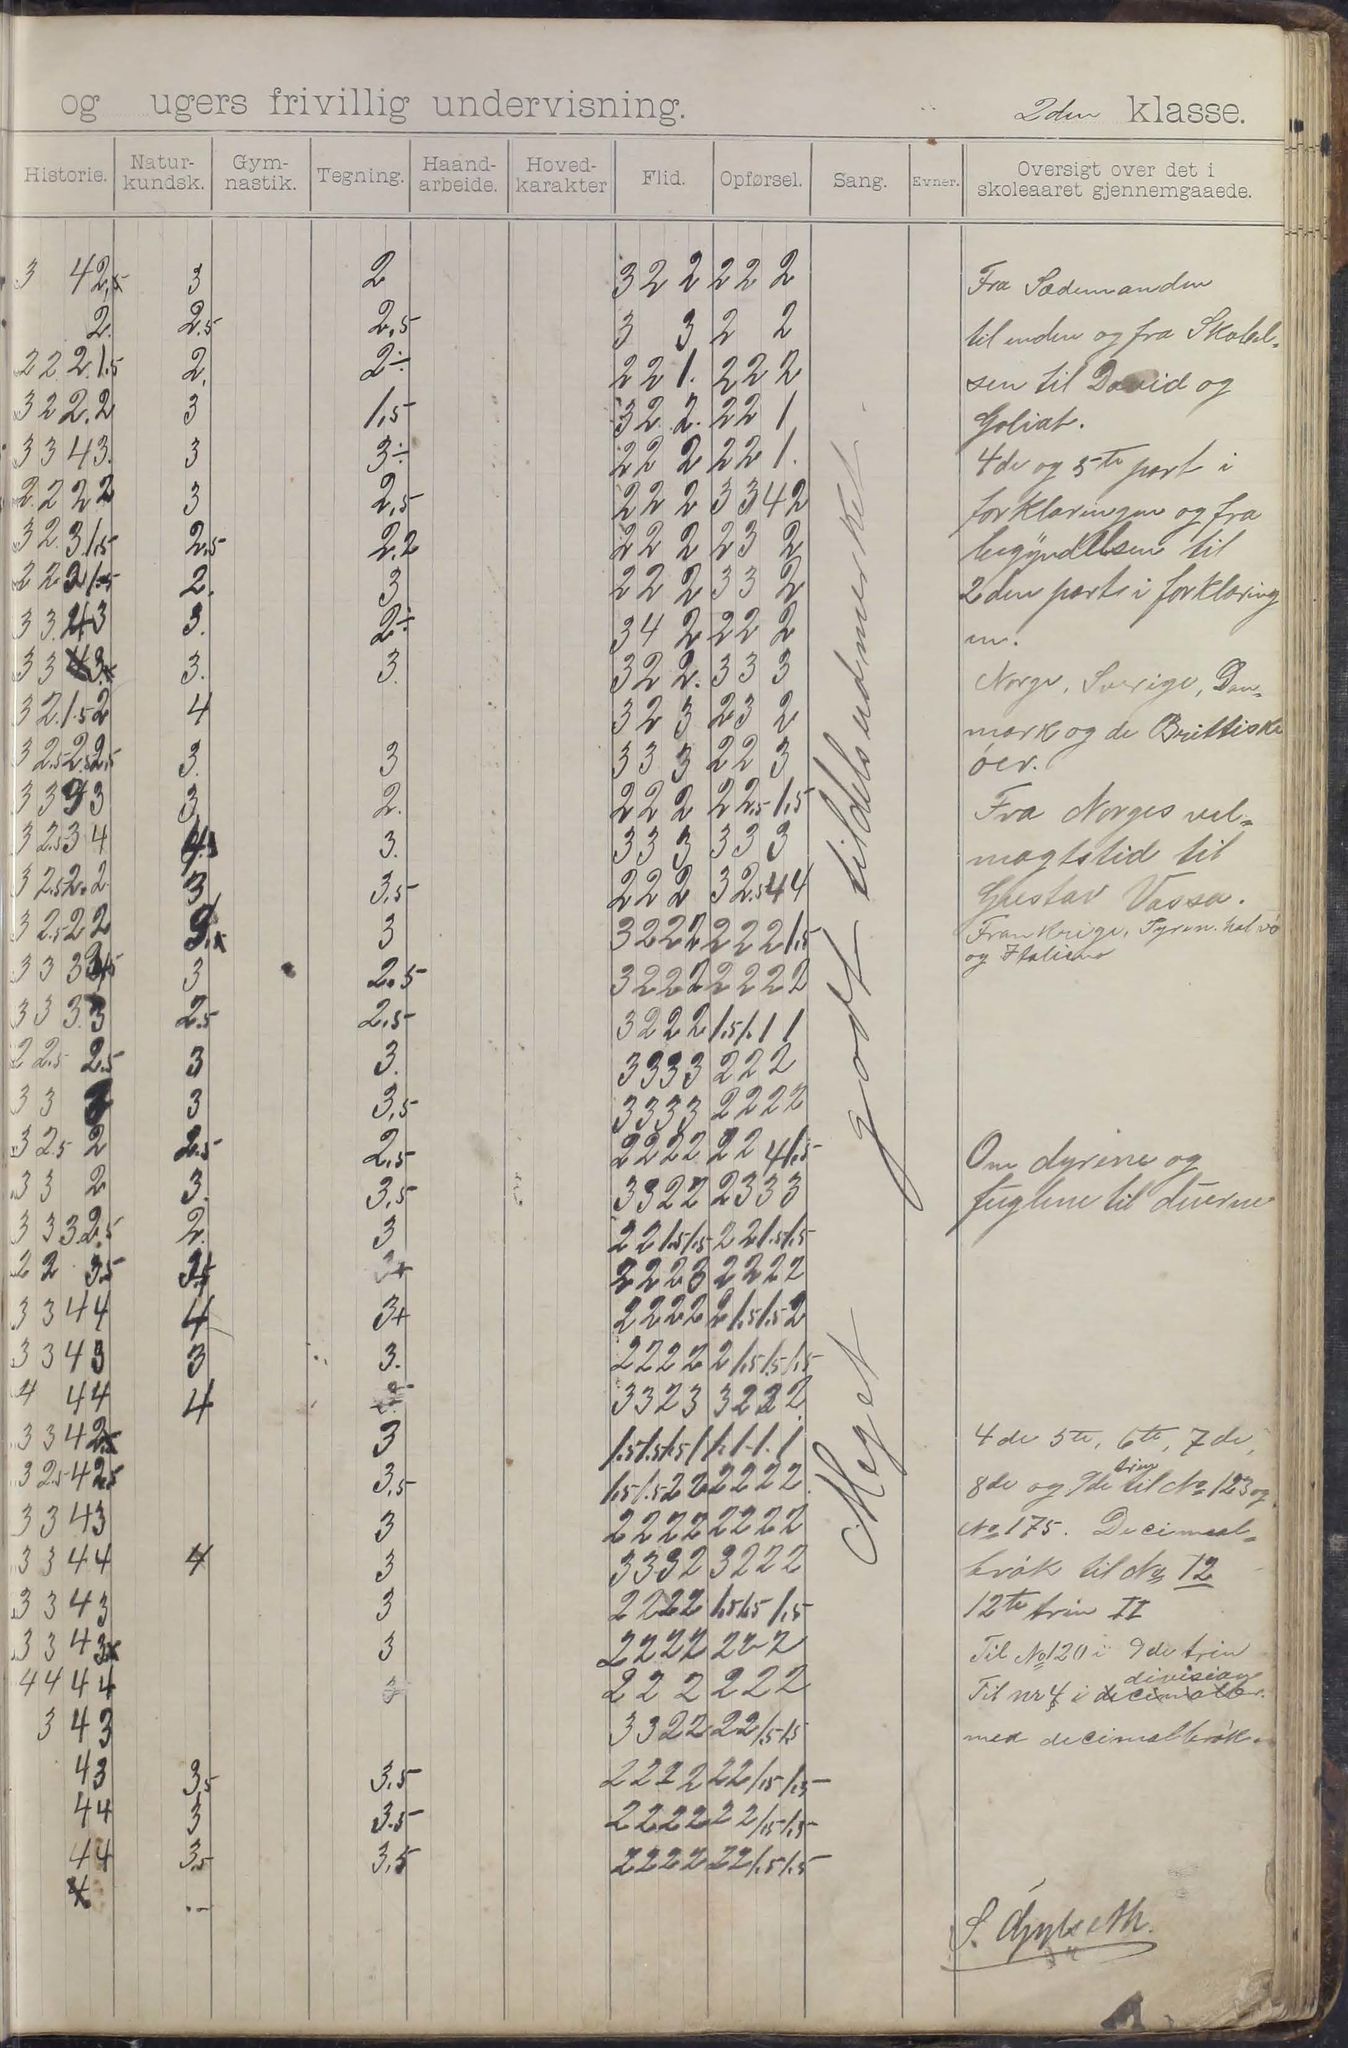 og ugers frivillig undervisning. 2den klasse.
Historie. Natur-kundsk. Gym-nastik. Tegning. Haand-arbeide. Hoved-karakter Flid. Opførsel. Sang. Evner. Oversigt over det i skoleaaret gjennemgaaede.
3 4 2,5 3 2 3 2 2 2 2 2
2. 2.5 2,5 3 3 2 2
2 2 2 1.5 2. 2÷ 2 2 1. 2 2 2
3 2 2.2 3 1,5 3 2 2. 2 2 1
3 3 4 3. 3 3÷ 2 2 2 2 2 1.
2 2 2 2 3 2,5 2 2 2 3 3 4 2
3 2 3 1.5 2.5 2.2 2 2 2 2 3 2
2 2 2 1.5 2. 3 2 2 2 3 3 2
3 3 4 3 3. 2÷ 3 4 2 2 2 2
3 3 3. 3. 3 2 2. 3 3 3
3 2 1.5 2 4 3 2 3 2 3 2
3 2.5 2.5 2.5 3. 3 3 3 3 2 2 3
3 3 3 3 3 2. 2 2 2 2 2.5 1,5
3 2.5 3 4 3. 3 3 3 3 3 3
3 2.5 2.2 3 3,5 2 2 2 3 2.5 4 4
3 2.5 2 2 3 3 2 2 2 2 2 2 1,5
3 3 3 3 2.5 3 2 2 2 2 2 2 2
3 3 3 3 2.5 2,5 3 2 2 2 1.5 1. 1 1
2 2.5 2.5 3 3. 3 3 3 3 2 2 2
3 3 3 3,5 3 3 3 3 2 2 2 2
3 2.5 2 2.5 2,5 2 2 2 2 2 2 4 1.5
3 3 2 3. 3,5 3 3 2 2 2 3 3 3
3 3 3 2.5 2. 3 2 2 1.5 1.5 2 2 1.5 1.5
2 2 3.5 2 2 2 3 2 2 2 2
3 3 4 4 4 3+ 2 2 2 2 2 1.5 1.5 2
3 3 4 3 3 3. 2 2 2 2 2 1.5 1.5 1.5
4 4 4 4 3 3 2 3 3 2 2 2
3 3 4 3 1.5 1.5 1.5 1 1. 1. 1. 1
3 2.5 4 2.5 3,5 1.5 1.5 2 2 2 2 2 2
3 3 4 3 3 2 2 2 2 2 2 2 2
3 3 4 4 4 3 3 3 3 2 3 2 2 2
3 3 4 3 3 2 2 2 2 1.5 1.5 1.5
3 3 4 3 3 2 2 2 2 2 2 2
4 4 4 4 3 2 2 2 2 2 2
3 4 3 3 3 2 2 2 2 1.5 1.5
4 3 3,5 3,5 2 2 2 2 2 2 1.5 1.5
4 4 3 3.5 2 2 2 2 2 2 1.5 1.5
4 4 3,5 3,5 2 2 2 2 2 2 1.5 1.5
Meget godt tildels udmerket
Fra Sædemanden
til enden og fra Skabel-
sen til David og
Goliat.
4de og 5te part i
forklaringen og fra
begyndelsen til
2den parts i forklaring
en.
Norge, Sverige, Dan-
mark og de Brittiske
øer.
Fra Norges vel-
magtstid til
Gustav Vassa.
Frankrige, Pyren. halvø
og Italien
Om dyrene og
fuglene til duerne
4de 5te, 6te, 7de,
8de og 9de trin til No 123 og
No 175. Decimal-
brøk til No 12
12te trin II
Til No 120 i 9de trin
Til nr 4 i division
med decimalbrøk.